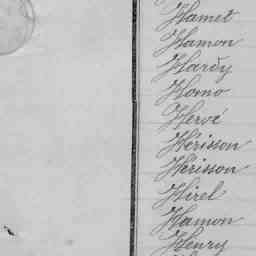 Hamet
Hamon
Hardy
Homo
Hervé
Hérisson
Hérisson
Hirel
Hamon
Henry